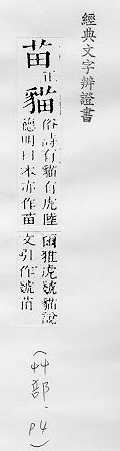 經典文字辨證書
苗正
貓俗詩有貓有虎陸
德明曰本亦作苗
爾雅虎虦貓說
文引作虦苗
(艸部·P4)